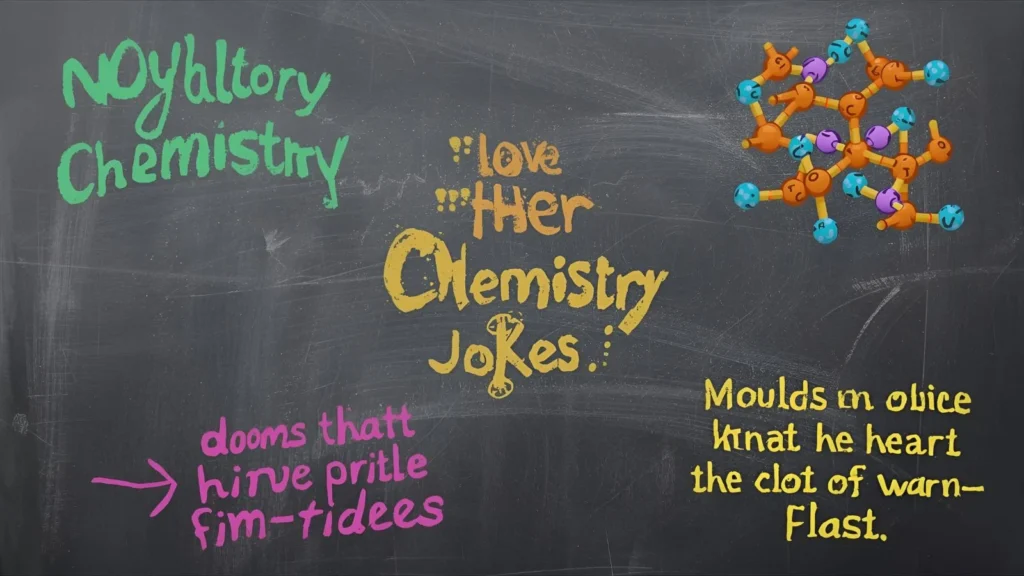 NOybltory
Chemistry
love
tHer
CHemistry
Jokes.
dooms thatt
hirve pritle
fim-tidees
Moulds m obice
Krnat he heart
the clot of warn–
Flast.